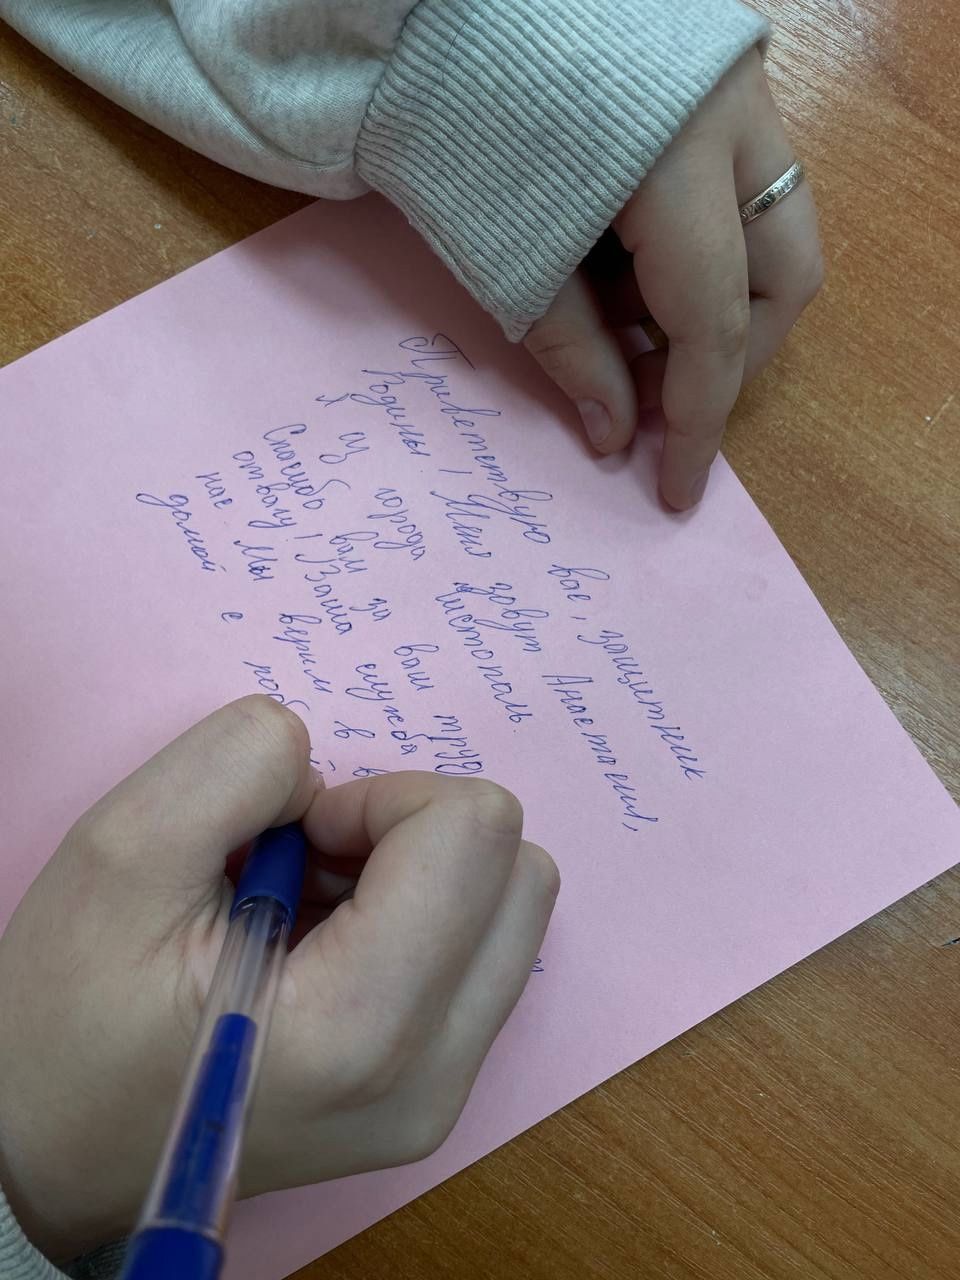 Приветствую вас, защитник
Родины! Меня зовут Анастасия,
я из города Чистополь.
Спасибо вам за ваш труд
отвагу! Ваша служба
нас. Мы верим в в
домой с поб